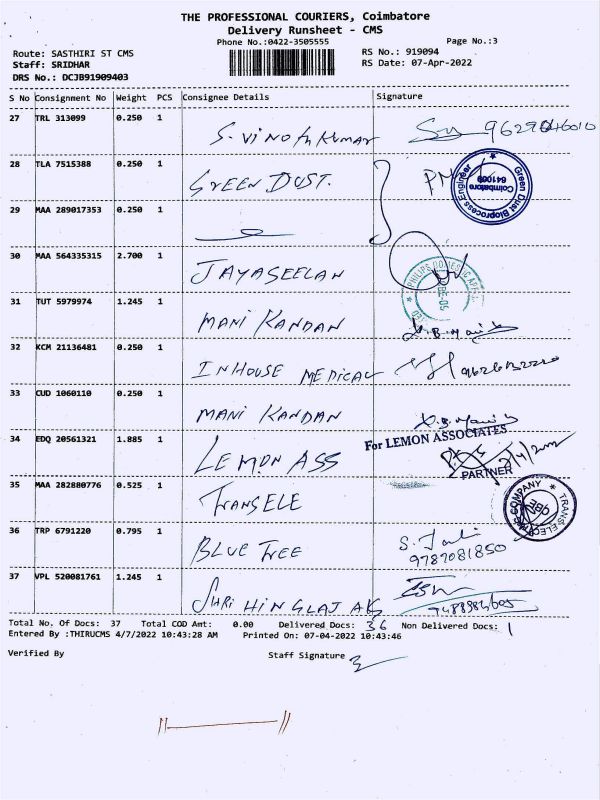 THE PROFESSIONAL COURIERS, Coimbatore
Delivery Runsheet - CMS
Phone No.:0422-3505555
Page No.:3
Route: SASTHIRI ST CMS
RS No.: 919094
Staff: SRIDHAR
RS Date: 07-Apr-2022
DRS No.: DCJB91909403
S No Consignment No Weight PCS Consignee Details Signature
27 TRL 313099 0.250 1 S. VINOTH KUMAR
28 TLA 7515388 0.250 1 GREEN DUST.
Green Dust Bioprocess Engineer
Coimbatore
641009
29 MAA 289017353 0.250 1
30 MAA 564335315 2.700 1 JAYASEELAN
PHILIPS DOMESTIC
31 TUT 5979974 1.245 1 MANI KANDAN
32 KCM 21136481 0.250 1 INHOUSE MEDICAL
33 CUD 1060110 0.250 1 MANI KANDAN
34 EDQ 20561321 1.885 1 LEMON ASS
For LEMON ASSOCIATES
PARTNER
35 MAA 282880776 0.525 1 TRANSELE
COMPANY TRANS-ELECTRIC
36 TRP 6791220 0.795 1 BLUE TREE
9787081850
37 VPL 520081761 1.245 1 SHRI HINGLAJ AG
Total No. Of Docs: 37 Total COD Amt: 0.00 Delivered Docs: 36 Non Delivered Docs: 1
Entered By :THIRUCMS 4/7/2022 10:43:28 AM Printed On: 07-04-2022 10:43:46
Verified By Staff Signature